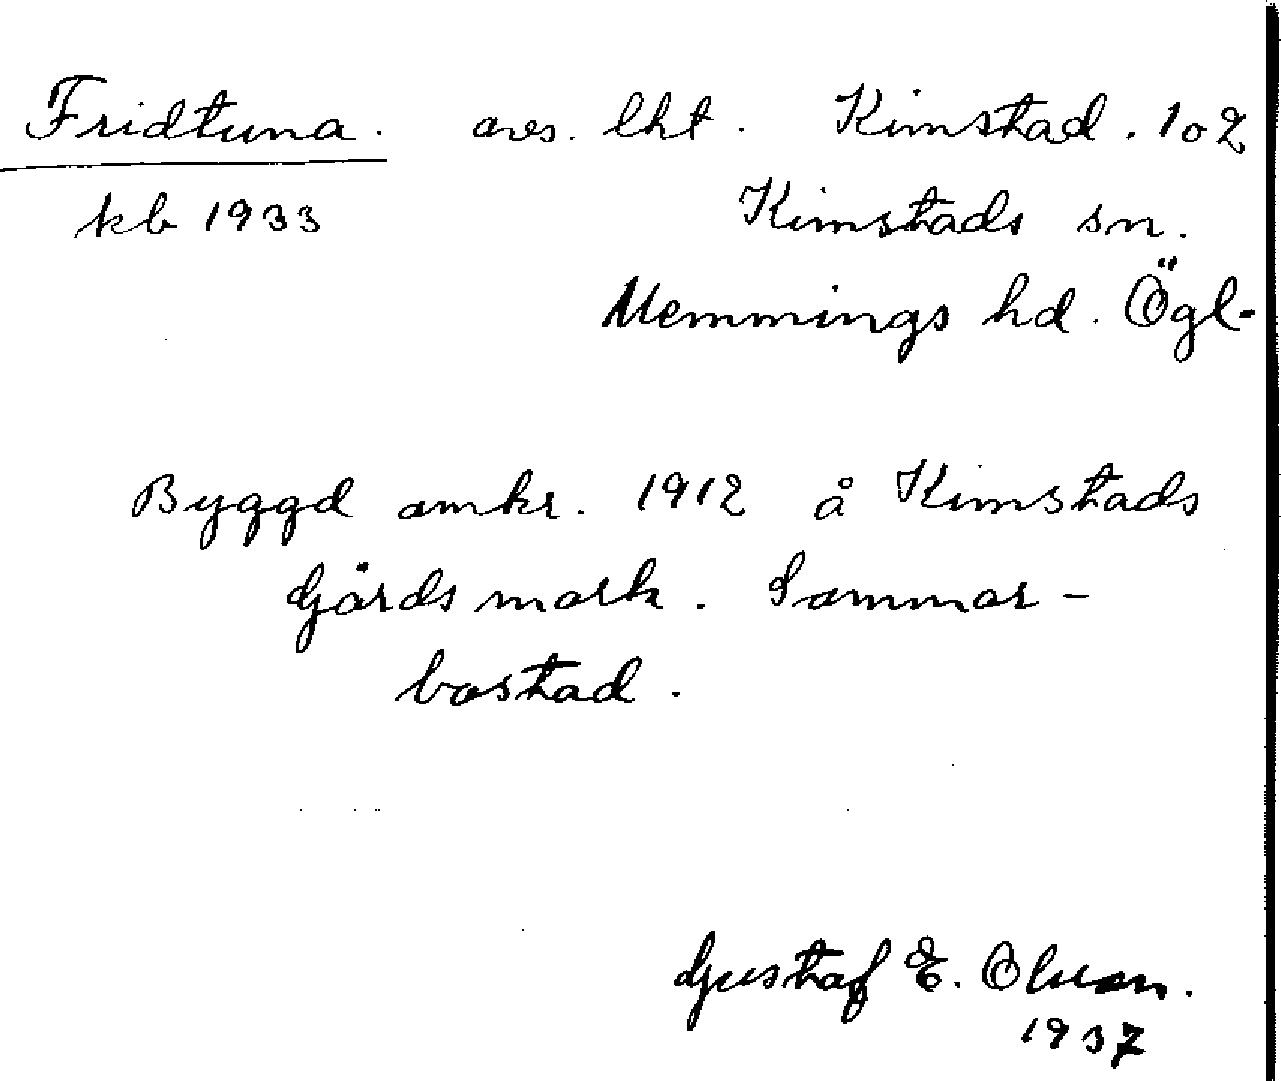 Fridtuna. avs. lht. Kimstad. 1 o 2
kb 1933 Kimstads sn.
Memmings hd. Ögl-
Byggd omkr. 1912 å Kimstads
Gårds mark. Sommar-
bostad.
Gustaf E. Olsson.
1937